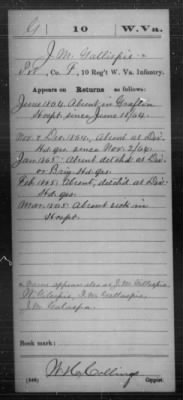 G 10 W.Va.
J. M. Gallispie
Pvt, Co. F, 10 Reg't W. Va. Infantry.
Appears on Returns as follows:
June 1864, Absent in Grafton
Hospt. since June 15/64.
Nov. & Dec. 1864, Absent at Div.
Hd. qrs. since Nov. 2/64.
Jan. 1865. Absent detch'd at Div.
or Brig. Hd. qrs.
Feb. 1865. Absent, detch'd at Div.
Hd. qrs.
Mar. 1865. Absent sick in
Hospt.
Name appears also as J. M. Gillespie,
W. Gilespie, J. M. Gallaspie,
J. M. Galaspie.
Book mark:
W. H. C. Collings
(546) Copyist.